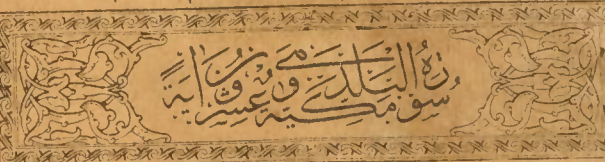 سُورَةُ الْبَلَدِ مَكِّيَّةٌ وَهِيَ عِشْرُونَ اٰيَةً